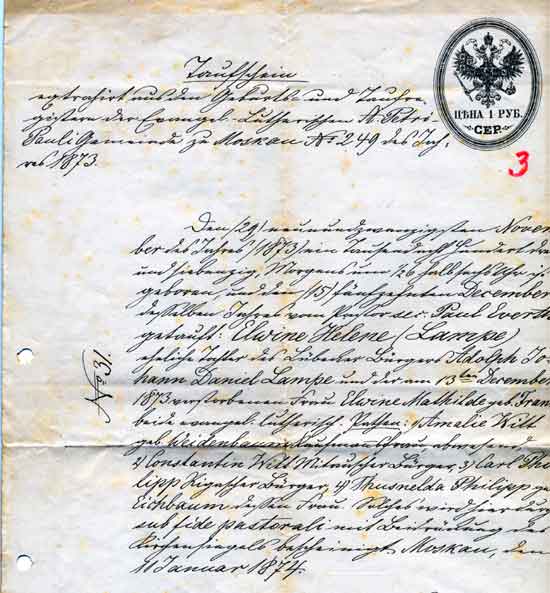 Taufschein
ЦѢНА 1 РУБ.
СЕР.
3
extrahirt aus den Geburts- und Taufre-
gistern der Evangel-Lutherischen St. Petri-
Pauli Gemeinde zu Moskau No. 249 des Jah-
res 1873.
Den (29) neunundzwanzigsten Novem
ber des Jahres (1873) ein Tausend acht Hundert drei
und siebenzig, Morgens um ½6 halb sechs Uhr
geboren, und den (15) fünfzehnten December
desselben Jahres vom Pastor Paul Everth
getauft: Elwine Helene (Lampe)
No. 31.
eheliche Tochter des Lübecker Bürgers Adolph Jo-
hann Daniel Lampe und der am 13ten December
1873 verstorbenen Frau Elwine Mathilde geb. Fran
beide evangel. lutherisch. Pathen: 1) Amalie Witt
geb. Weidenbaum Kaufmannsfrau abwesend
2) Constantin Witt Mitauscher Bürger, 3) Carl Phi
lipp Rigascher Bürger, 4) Thusnelda Philipp g
Eichbaum dessen Frau. Solches wird hier durch
sub fide pastorali mit Beidrückung des
Kirchensiegels bescheinigt Moskau, den
11 Januar 1874.